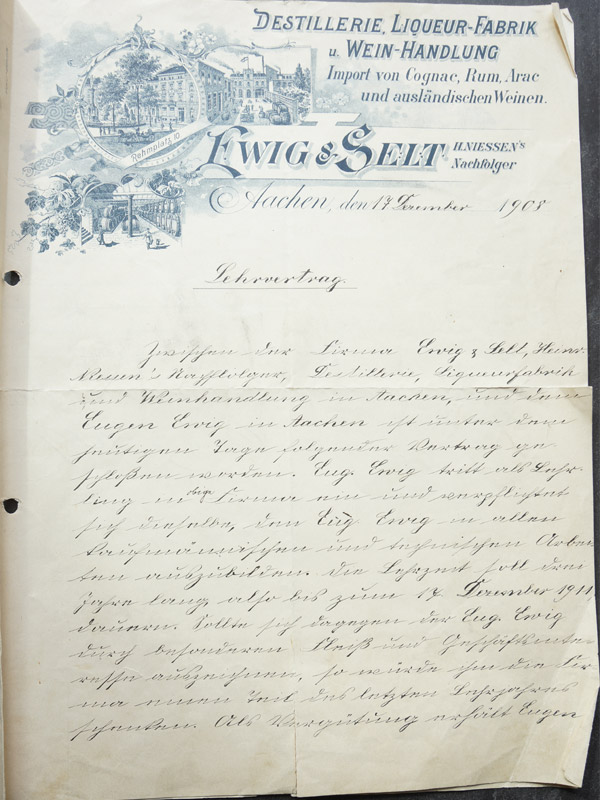 DESTILLERIE, LIQUEUR-FABRIK
u. WEIN-HANDLUNG
Import von Cognac, Rum, Arac
und ausländischen Weinen.
Rehmplatz 10
EWIG & SELT H. NIESSEN's
Nachfolger
Aachen, den 17 Dezember 1908
Lehrvertrag.
Zwischen der Firma Ewig & Selt, Heinr.
Niessen's Nachfolger, Destillerie, Liqueurfabrik
und Weinhandlung in Aachen, und dem
Eugen Ewig in Aachen ist unter dem
heutigen Tage folgender Vertrag ge-
schloßen worden. Eug. Ewig tritt als Lehr-
ling in obige Firma ein und verpflichtet
sich dieselbe, den Eug. Ewig in allen
kaufmännischen und technischen Arbei-
ten auszubilden. Die Lehrzeit soll drei
Jahre lang, also bis zum 17. Dezember 1911
dauern. Sollte sich dagegen der Eug. Ewig
durch besonderen Fleiß und Geschäftsinte-
resse auszeichnen, so würde ihm die Fir-
ma einen Teil des letzten Lehrjahres
schenken. Als Vergütung erhält Eugen